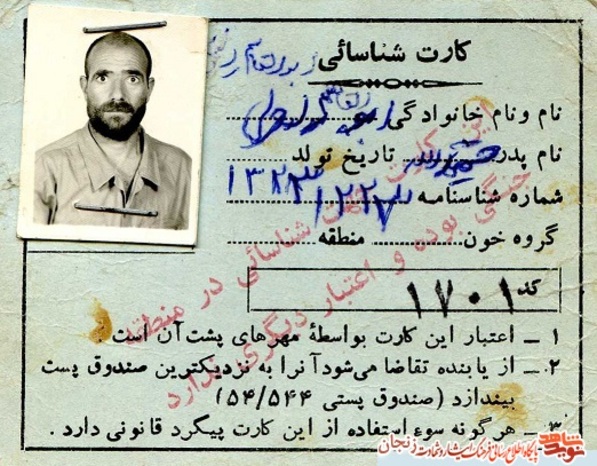 کارت شناسائی
نام و نام خانوادگی
نام پدر تاریخ تولد
شماره شناسنامه
گروه خون منطقه
کد ۱۷۰۱
این کارت جهت شناسائی در منطقه
جنگی بوده و اعتبار دیگری ندارد
۱ - اعتبار این کارت بواسطهٔ مهرهای پشت آن است.
۲ - از یابنده تقاضا می‌شود آنرا به نزدیکترین صندوق پست
بیندازد (صندوق پستی ۵۴/۵۴۴)
۳ - هرگونه سوء استفاده از این کارت پیگرد قانونی دارد.
نوید شاهد
پایگاه اطلاع رسانی فرهنگ ایثار و شهادت زنجان